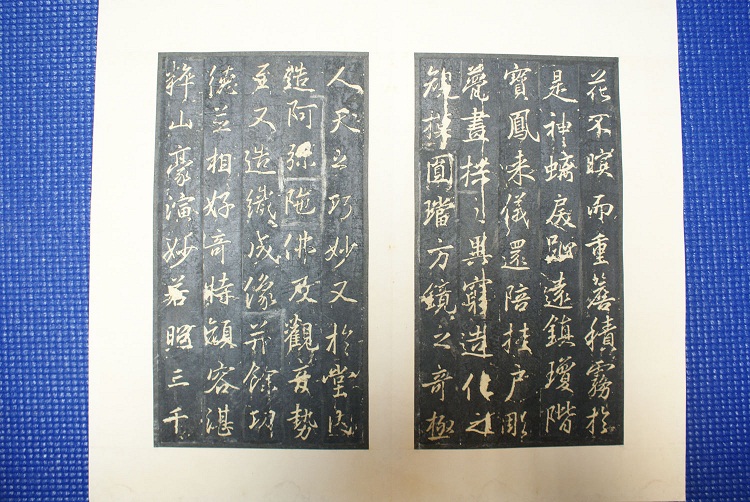 花不暝而重簷積霧於
是神螭戾趾遠鎮瓊階
寶鳳来儀還陪桂戶彫
甍畫栱之異窮造化之
規模圓璫方鏡之奇極
人天之巧妙又於堂內
造阿弥陁佛及觀音勢
至又造織成像并餘功
德並相好奇特顏容湛
粹山豪演妙若照三千